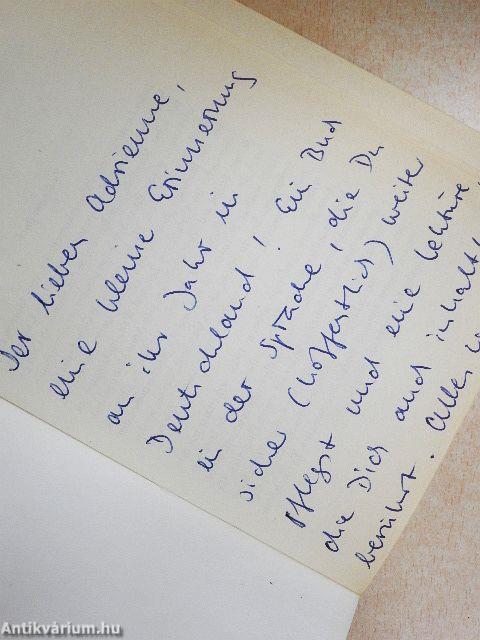 Der lieben Adrienne,
eine kleine Erinnerung
an ihr Jahr in
Deutschland! Ein Buch
in der Sprache, die Du
sicher (hoffentlich) weiter
pflegst und eine Lektüre,
die Dich auch inhaltl
berührt. Alles
Antikvárium.hu